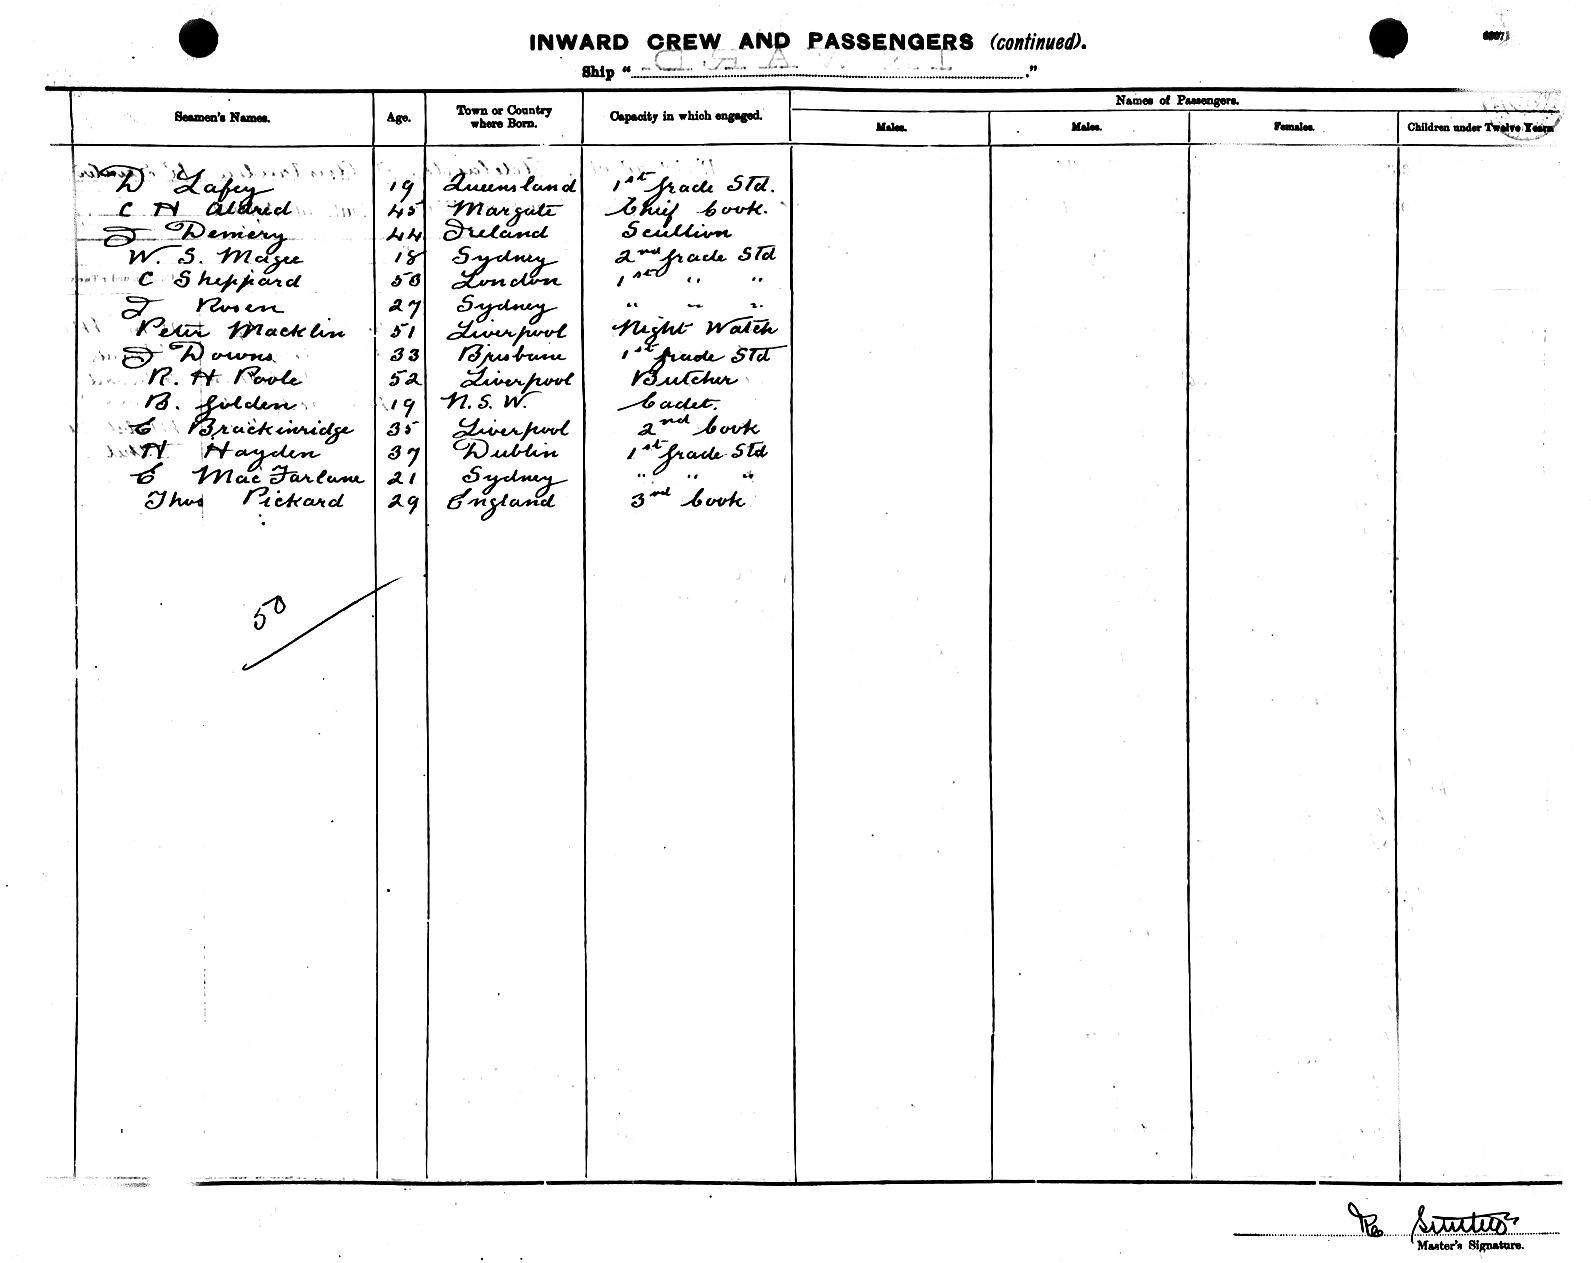 INWARD CREW AND PASSENGERS (continued).
Ship " ."
Seamen's Names. Age. Town or Country where Born. Capacity in which engaged. Names of Passengers.
Males. Males. Females. Children under Twelve Years
D Lafey 19 Queensland 1st grade Std.
C H Aldred 45 Margate Chief Cook.
J Demery 44 Ireland Scullion
W. S. Magee 18 Sydney 2nd grade Std
C Sheppard 50 London 1st " "
J Rosen 27 Sydney " " "
Peter Macklin 51 Liverpool Night Watch
J Downs 33 Brisbane 1st grade Std
R. H Poole 52 Liverpool Butcher
B. Golden 19 N. S. W. Cadet.
C Brackinridge 35 Liverpool 2nd Cook
H Hayden 37 Dublin 1st grade Std
C MacFarlane 21 Sydney " " "
Thos Pickard 29 England 3rd Cook
50
Master's Signature.